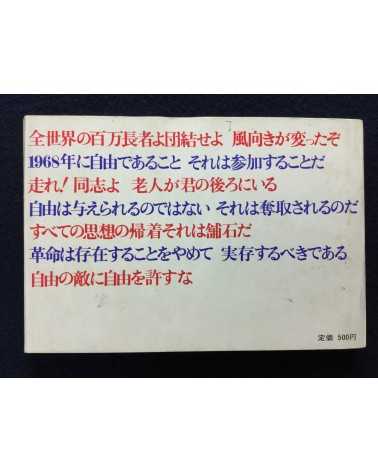 全世界の百万長者よ団結せよ 風向きが変ったぞ
1968年に自由であること それは参加することだ
走れ!同志よ 老人が君の後ろにいる
自由は与えられるのではない それは奪取されるのだ
すべての思想の帰着それは舗石だ
革命は存在することをやめて 実存するべきである
自由の敵に自由を許すな
定価 500円